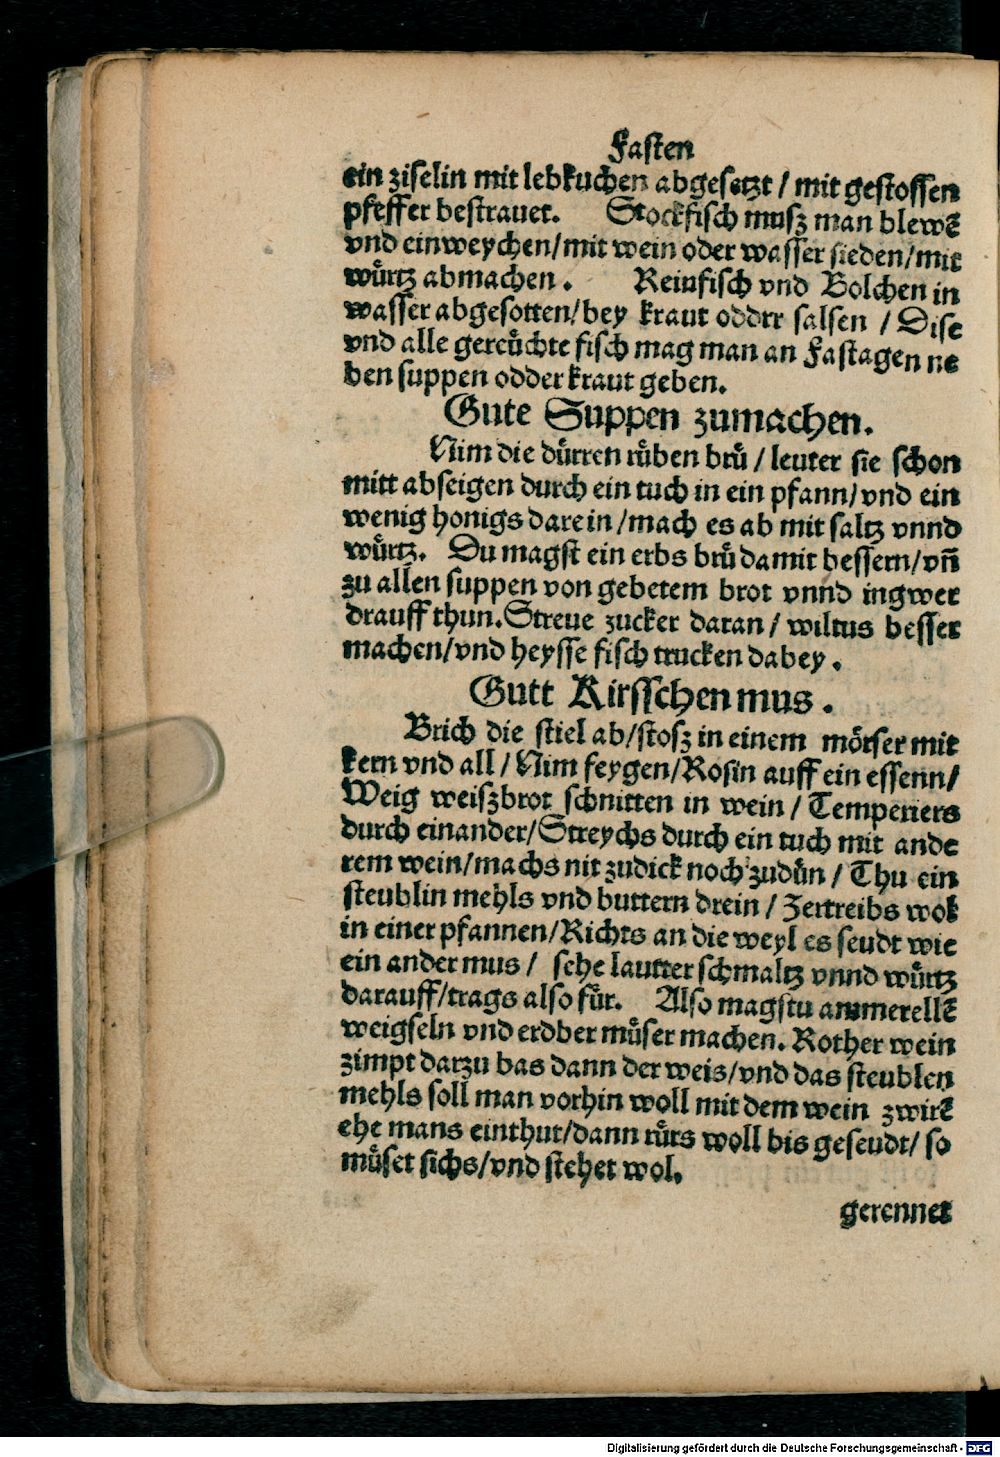 Fasten
ein ziselin mit lebkuchen abgesetzt / mit gestossen
pfeffer bestrauet. Stockfisch musz man blewē
vnd einweychen/mit wein oder wasser sieden/mit
wuͤrtz abmachen. Reinfisch vnd Bolchen in
wasser abgesotten/bey kraut odder salsen / Dise
vnd alle gereuͤchte fisch mag man an Fastagen ne
ben suppen odder kraut geben.
Gute Suppen zumachen.
Nim die duͤrren ruͤben bruͤ / leuter sie schon
mitt abseigen durch ein tuch in ein pfann/vnd ein
wenig honigs darein /mach es ab mit saltz vnnd
wuͤrtz. Du magst ein erbs bruͤ damit bessern/vn̄
zu allen suppen von gebetem brot vnnd ingwer
drauff thun.Streue zucker daran / wiltus besser
machen/vnd heysse fisch trucken dabey.
Gutt Kirsschen mus.
Brich die stiel ab/stosz in einem moͤrser mit
kern vnd all / Nim feygen/Rosin auff ein essenn/
Weig weiszbrot schnitten in wein / Temperiers
durch einander/Streychs durch ein tuch mit ande
rem wein/machs nit zudick noch zuduͤn / Thu ein
steublin mehls vnd buttern drein / Zertreibs wol
in einer pfannen/Richts an die weyl es seudt wie
ein ander mus / sehe lautter schmaltz vnnd wuͤrtz
darauff/trags also fuͤr. Also magstu ammerellē
weigseln vnd erdber muͤser machen. Rother wein
zimpt darzu bas dann der weis/vnd das steublen
mehls soll man vorhin woll mit dem wein zwirē
ehe mans einthut/dann ruͤrs woll bis geseudt/ so
muͤset sichs/vnd stehet wol.
gerennet
Digitalisierung gefördert durch die Deutsche Forschungsgemeinschaft - DFG